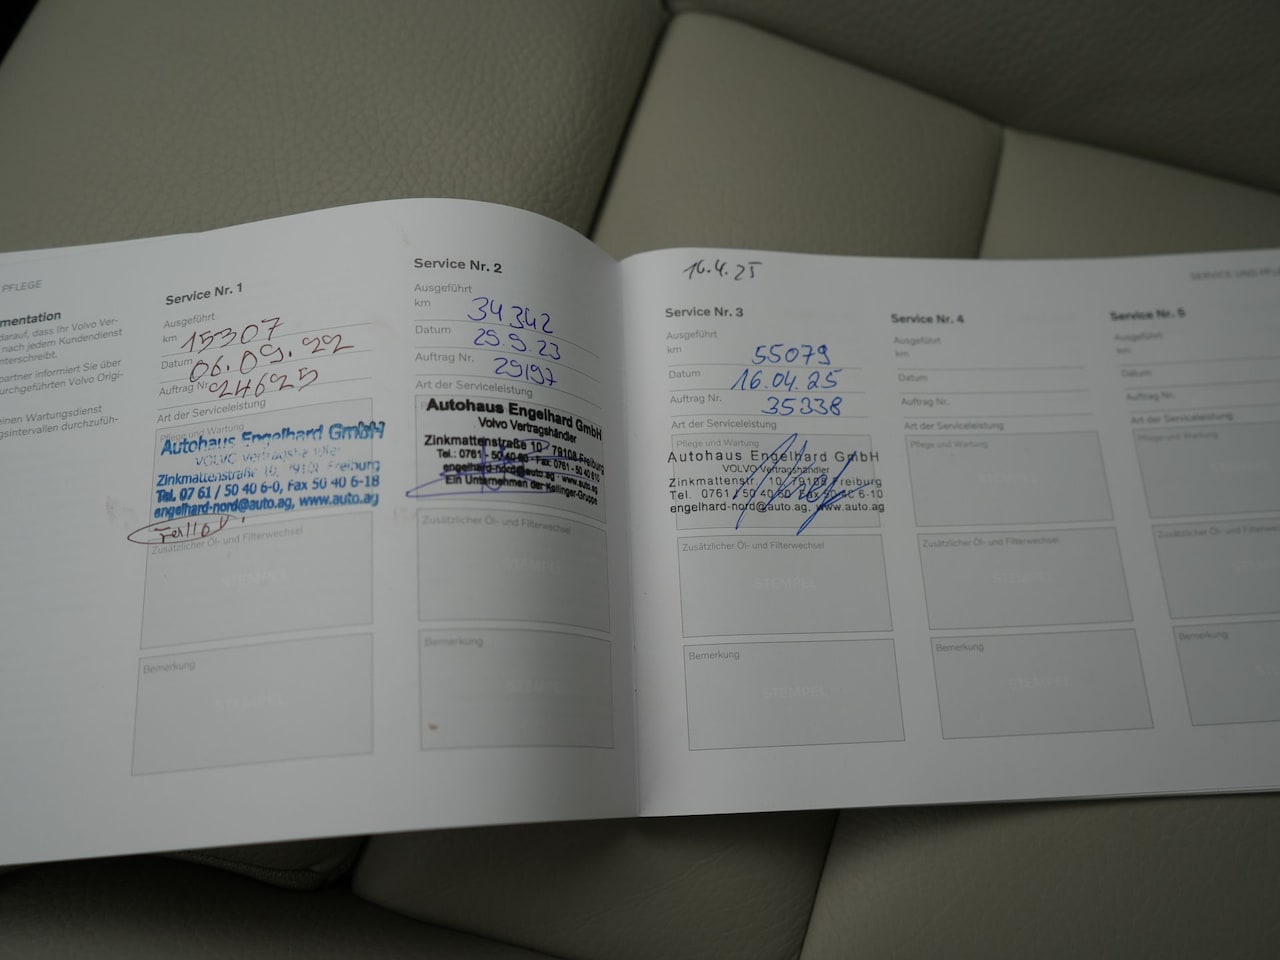 PFLEGE
mentation
darauf, dass Ihr Volvo Ver-
nach jedem Kundendienst
nterschreibt.
partner informiert Sie über
urchgeführten Volvo Origi-
einen Wartungsdienst
gsintervallen durchzufüh-
Service Nr. 1
Ausgeführt
km 15307
Datum 06.09.22
Auftrag Nr. 24625
Art der Serviceleistung
Pflege und Wartung
Autohaus Engelhard GmbH
VOLVO Vertragshändler
Zinkmattenstraße 10, 79108 Freiburg
Tel. 07 61 / 50 40 6-0, Fax 50 40 6-18
engelhard-nord@auto.ag, www.auto.ag
Zusätzlicher Öl- und Filterwechsel
STEMPEL
Bemerkung
STEMPEL
Service Nr. 2
Ausgeführt
km 34342
Datum 25.9.23
Auftrag Nr. 29197
Art der Serviceleistung
Autohaus Engelhard GmbH
Volvo Vertragshändler
Zinkmattenstraße 10 79108 Freiburg
Tel.: 0761 - 50 40 60 Fax: 0761 - 50 40 610
engelhard-nord@auto.ag - www.auto.ag
Ein Unternehmen der Kollinger-Gruppe
Zusätzlicher Öl- und Filterwechsel
STEMPEL
Bemerkung
STEMPEL
16.4.25
Service Nr. 3
Ausgeführt
km 55079
Datum 16.04.25
Auftrag Nr. 35338
Art der Serviceleistung
Pflege und Wartung
Autohaus Engelhard GmbH
VOLVO Vertragshändler
Zinkmattenstr. 10, 79108 Freiburg
Tel. 0761/50 40 60 Fax 50 40 6-10
engelhard-nord@auto.ag, www.auto.ag
Zusätzlicher Öl- und Filterwechsel
STEMPEL
Bemerkung
STEMPEL
SERVICE UND PFLE
Service Nr. 4
Ausgeführt
km
Datum
Auftrag Nr.
Art der Serviceleistung
Pflege und Wartung
Zusätzlicher Öl- und Filterwechsel
STEMPEL
Bemerkung
STEMPEL
Service Nr. 5
Ausgeführt
km
Datum
Auftrag Nr.
Art der Serviceleistung
Pflege und Wartung
Zusätzlicher Öl- und Filterwechs
Bemerkung